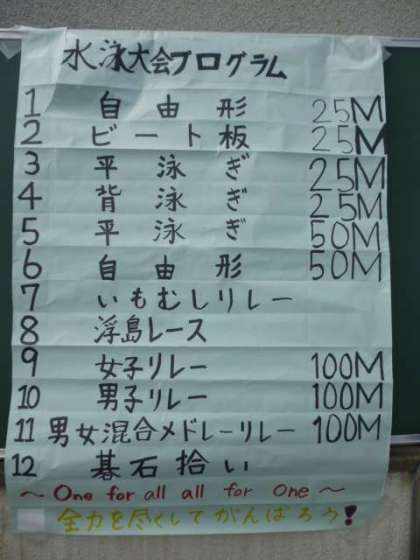 水泳大会プログラム
1 自由形 25M
2 ビート板 25M
3 平泳ぎ 25M
4 背泳ぎ 25M
5 平泳ぎ 50M
6 自由形 50M
7 いもむしリレー
8 浮島レース
9 女子リレー 100M
10 男子リレー 100M
11 男女混合メドレーリレー 100M
12 碁石拾い
～ One for all all for One ～
全力を尽くしてがんばろう!